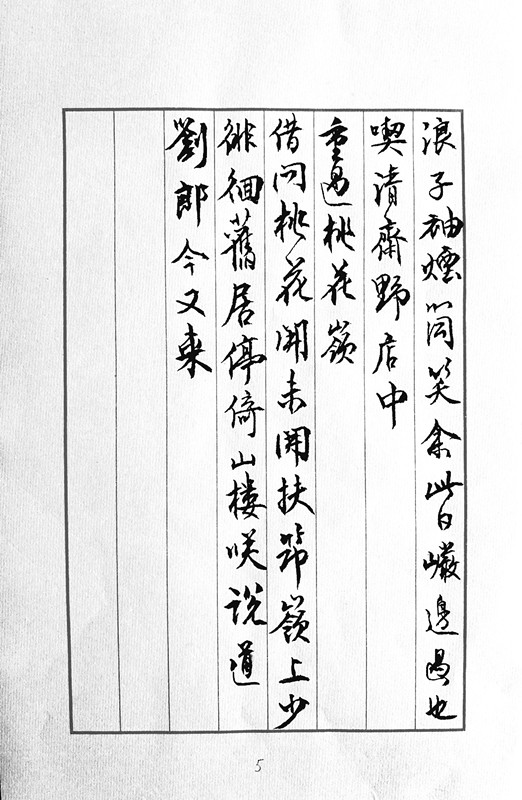 浪子袖煙筒笑余此日巖邊過也
喫清齋野店中
重過桃花嶺
借問桃花開未開扶筇嶺上少
徘徊舊居停倚山樓咲說道
劉郎今又來
5